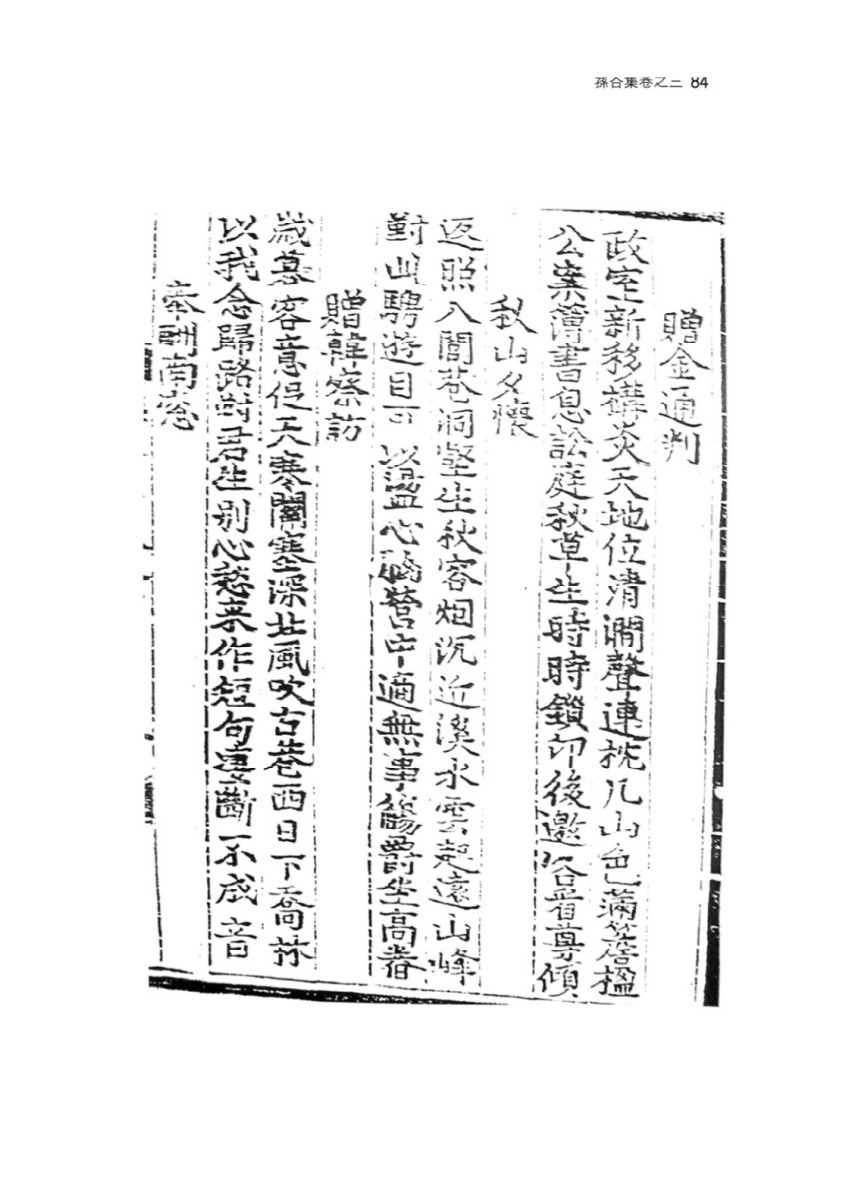 孫谷集卷之三 84
贈金通判
政室新移構炎天地位清澗聲連枕几山色滿簷楹
公案簿書息訟庭秋草生時時鎖印後邀客晉尊傾
秋山夕懷
返照入閭巷洞壑生秋容烟沉近溪水雲起遠山峰
對此騁遊目可以盪心胸營中適無事觴爵坐高舂
贈韓察訪
歲暮客意促天寒關塞深北風吹古巷西日下喬林
以我念歸路對君生别心愁來作短句凄斷不成音
奉酬南窓